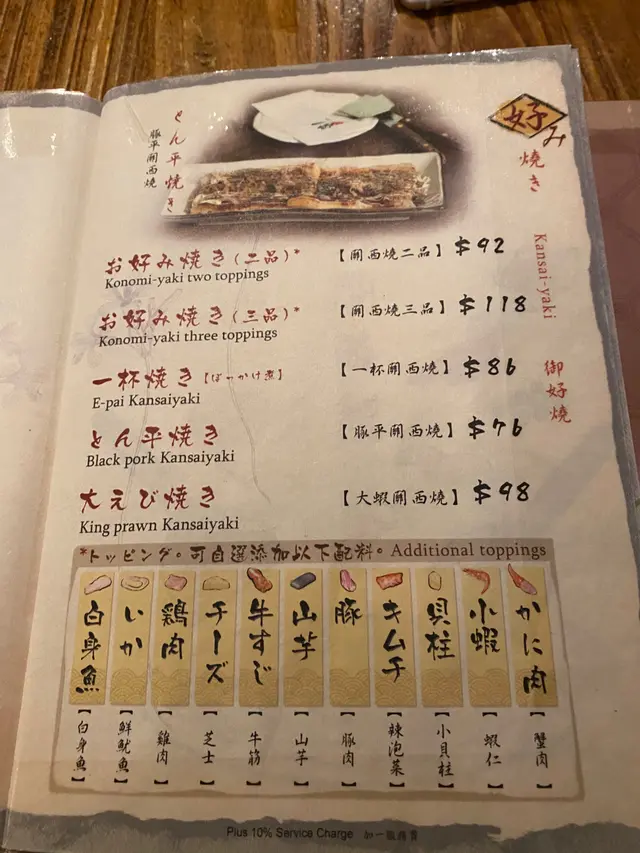 とん平焼き
豚平関西燒
好み
燒き
Kansai-yaki
御好燒
お好み焼き(二品)*
【関西燒二品】 $92
Konomi-yaki two toppings
お好み焼き(三品)*
【関西燒三品】 $118
Konomi-yaki three toppings
一杯焼き
【一杯関西燒】 $86
E-pai Kansaiyaki
とん平焼き
【豚平関西燒】 $76
Black pork Kansaiyaki
大えび焼き
【大蝦関西燒】 $98
King prawn Kansaiyaki
*トッピング。可自選添加以下配料。 Additional toppings
白身魚
いか
鶏肉
チーズ
牛すじ
山芋
豚
キムチ
貝柱
小蝦
かに肉
【白身魚】
【鮮魷魚】
【雞肉】
【芝士】
【牛筋】
【山芋】
【豚肉】
【辣泡菜】
【小貝柱】
【蝦仁】
【蟹肉】
Plus 10% Service Charge 加一服務費